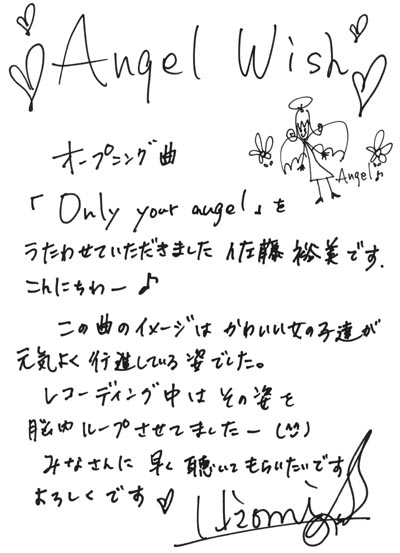 ♡ Angel Wish ♡
Angel♪
オープニング曲
「Only your angel」を
うたわせていただきました 佐藤裕美です.
こんにちわー♪
この曲のイメージは かわいい女の子達が
元気よく行進している姿でした。
レコーディング中は その姿を
脳内ループさせてましたー(^^)
みなさんに 早く聴いてもらいたいです
よろしくです♡
Hiromi